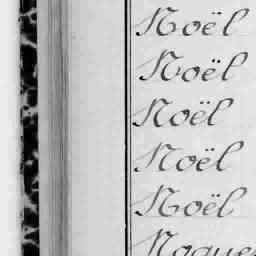 Noël
Noël
Noël
Noël
Noël